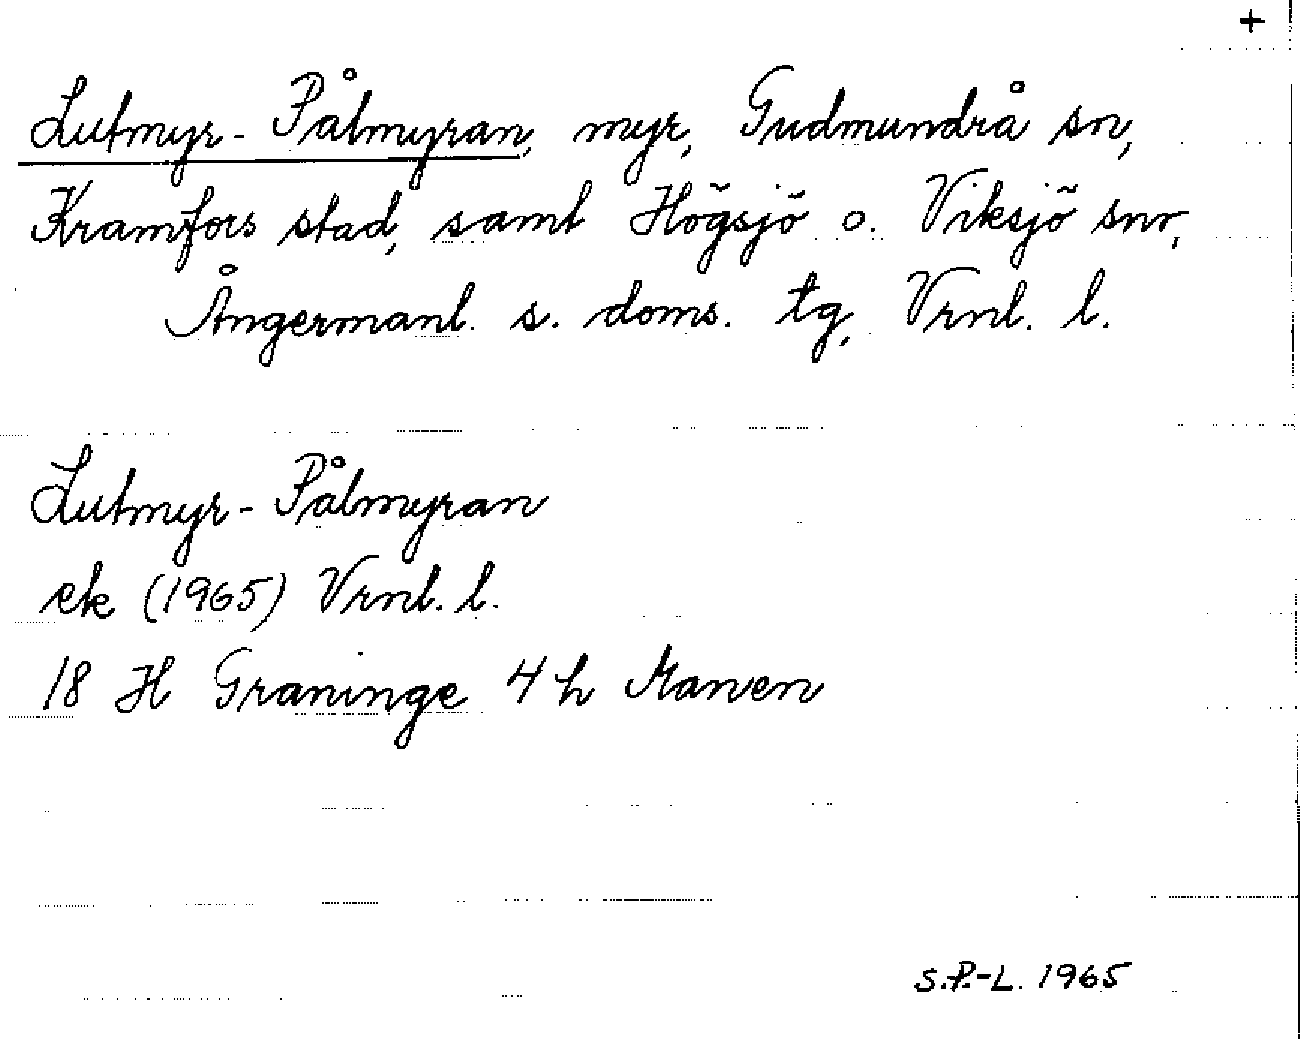 +
Lutmyr-Pålmyran, myr, Gudmundrå sn,
Kramfors stad, samt Högsjö o. Viksjö snr,
Ångermanl. s. doms. tg, Vrnl. l.
Lutmyr-Pålmyran
ek (1965) Vrnl. l.
18 H Graninge 4 h Manen
S.P.-L. 1965